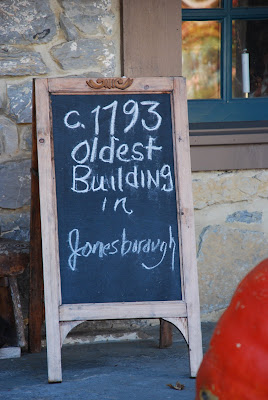 c. 1793
oldest
Building
in
Jonesborough